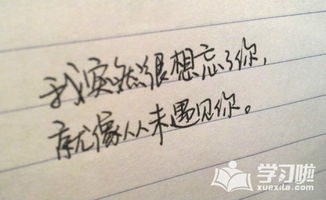 我突然很想忘了你,
就像从未遇见你。
学习啦
xuexila.com